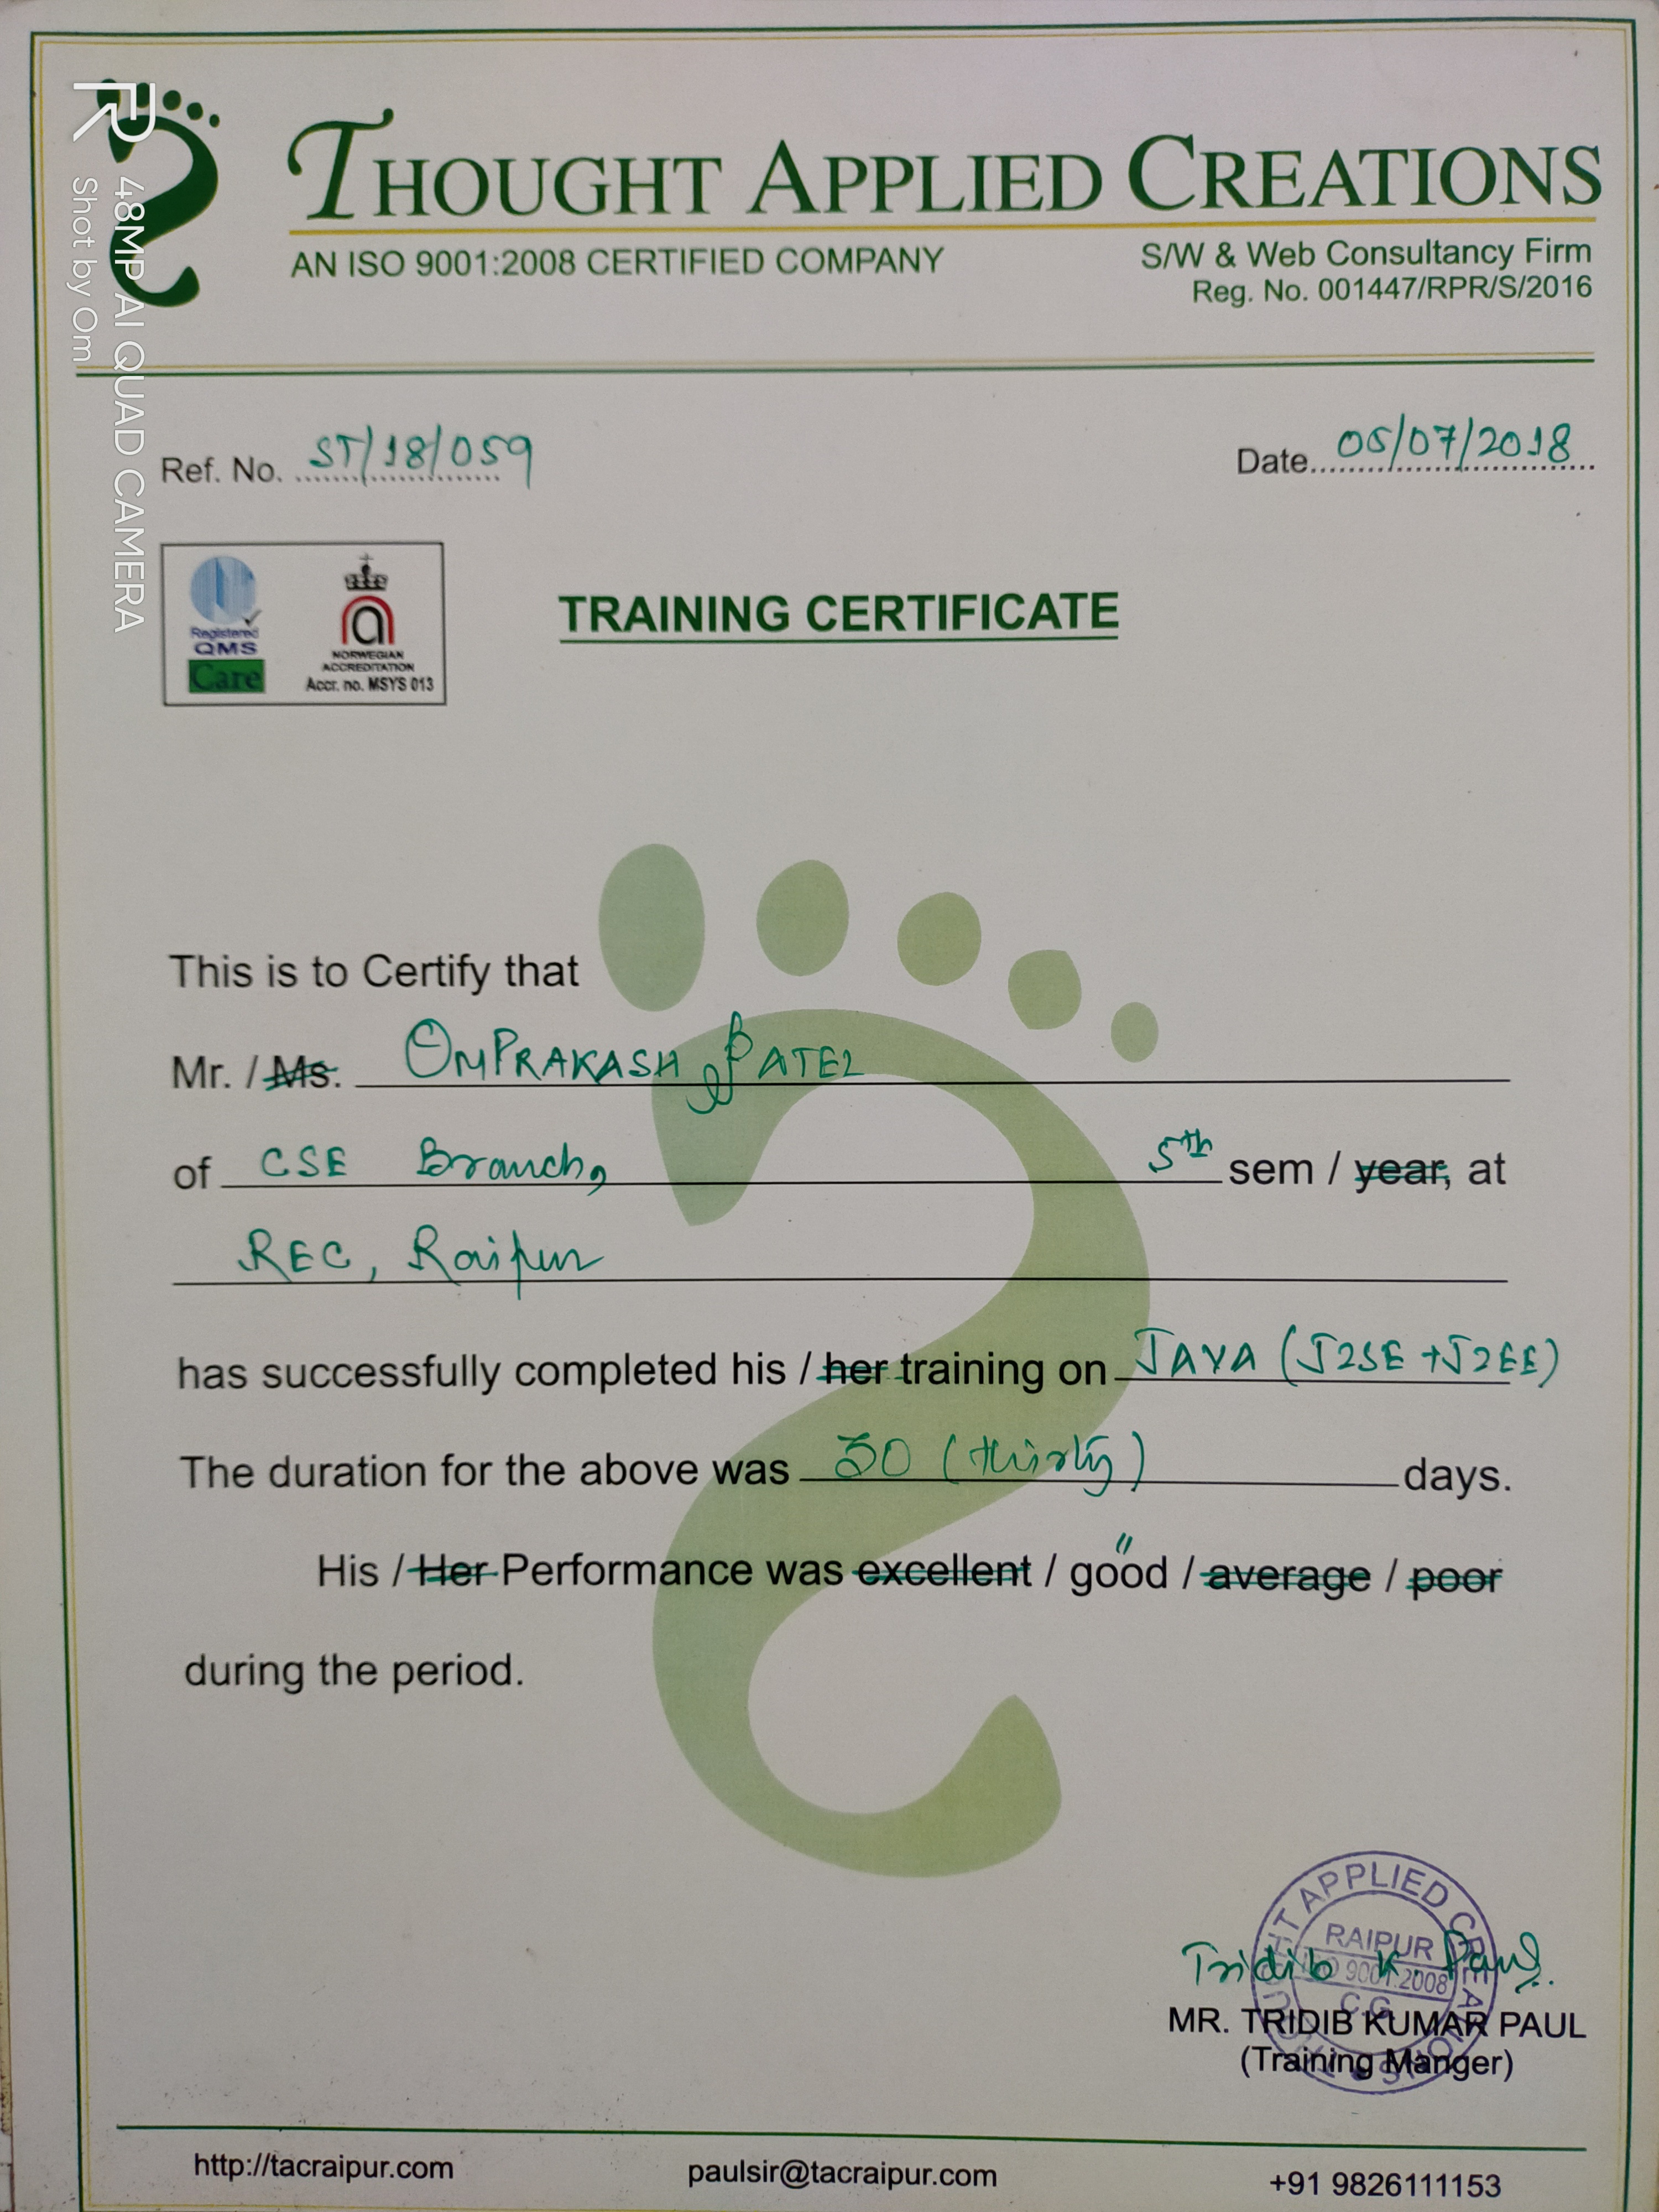 THOUGHT APPLIED CREATIONS
AN ISO 9001:2008 CERTIFIED COMPANY
S/W & Web Consultancy Firm
Reg. No. 001447/RPR/S/2016
48MP AI QUAD CAMERA
Shot by Om
Ref. No. ST/18/059
Date 05/07/2018
Registered
QMS
Care
NORWEGIAN
ACCREDITATION
Accr. no. MSYS 013
TRAINING CERTIFICATE
This is to Certify that
Mr. / Ms. OMPRAKASH PATEL
of CSE Branch, 5th sem / year, at
REC, Raipur
has successfully completed his / her training on JAVA (J2SE + J2EE)
The duration for the above was 30 (thirty) days.
His / Her Performance was excellent / good / average / poor
during the period.
THOUGHT APPLIED CREATIONS
RAIPUR
ISO 9001:2008
C.G.
Tridib K. Paul
MR. TRIDIB KUMAR PAUL
(Training Manger)
http://tacraipur.com
paulsir@tacraipur.com
+91 9826111153